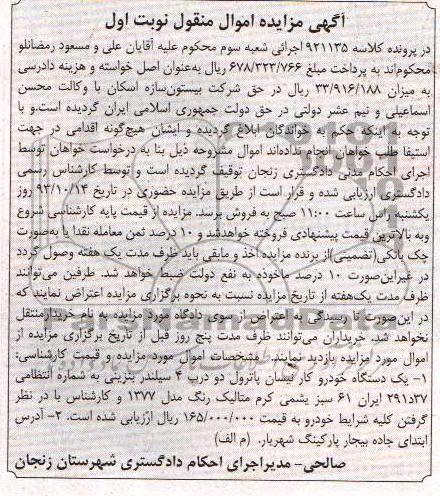 آگهی مزایده اموال منقول نوبت اول
در پرونده کلاسه ۹۲۱۱۳۵ اجرائی شعبه سوم محکوم علیه آقایان علی و مسعود رمضانلو
محکوم‌اند به پرداخت مبلغ ۶۷۸/۳۲۳/۷۶۶ ریال به‌عنوان اصل خواسته و هزینه دادرسی
به میزان ۳۳/۹۱۶/۱۸۸ ریال در حق شرکت بیستون‌سازه اسکان با وکالت محسن
اسماعیلی و نیم عشر دولتی در حق دولت جمهوری اسلامی ایران گردیده است.و با
توجه به اینکه حکم به خواندگان ابلاغ گردیده و ایشان هیچ‌گونه اقدامی در جهت
استیفا طلب خواهان انجام نداده‌اند اموال مشروحه ذیل بنا به درخواست خواهان توسط
اجرای احکام مدنی دادگستری زنجان توقیف گردیده است و توسط کارشناس رسمی
دادگستری ارزیابی شده و قرار است از طریق مزایده حضوری در تاریخ ۹۳/۱۰/۱۴ روز
یکشنبه راس ساعت ۱۱:۰۰ صبح به فروش برسد. مزایده از قیمت پایه کارشناسی شروع
وبه بالاترین قیمت پیشنهادی فروخته خواهدشد و ۱۰ درصد ثمن معامله نقدا یا به‌صورت
چک بانکی(تضمینی)ازبرنده مزایده اخذ و مابقی باید ظرف مدت یک هفته وصول گردد
در غیراین‌صورت ۱۰ درصد ماخوذه به نفع دولت ضبط خواهد شد. طرفین می‌توانند
ظرف مدت یک‌هفته از تاریخ مزایده نسبت به نحوه برگزاری مزایده اعتراض نمایند که
در این‌صورت تا رسیدگی به اعتراض از سوی دادگاه مورد مزایده به نام خریدارمنتقل
نخواهد شد. خریداران می‌توانند ظرف مدت پنج روز قبل از تاریخ برگزاری مزایده از
اموال مورد مزایده بازدید نمایند. مشخصات اموال مورد مزایده و قیمت کارشناسی:
۱- یک دستگاه خودرو کار نیسان پاترول دو درب ۴ سیلندر بنزینی به شماره انتظامی
۳۷د۲۹۱ ایران ۶۱ سبز یشمی کرم متالیک رنگ مدل ۱۳۷۷ و کارشناس با در نظر
گرفتن کلیه شرایط خودرو به قیمت ۱۶۵/۰۰۰/۰۰۰ ریال ارزیابی شده است. ۲- آدرس
ابتدای جاده بیجار پارکینگ شهریار. (م الف)
صالحی- مدیراجرای احکام دادگستری شهرستان زنجان